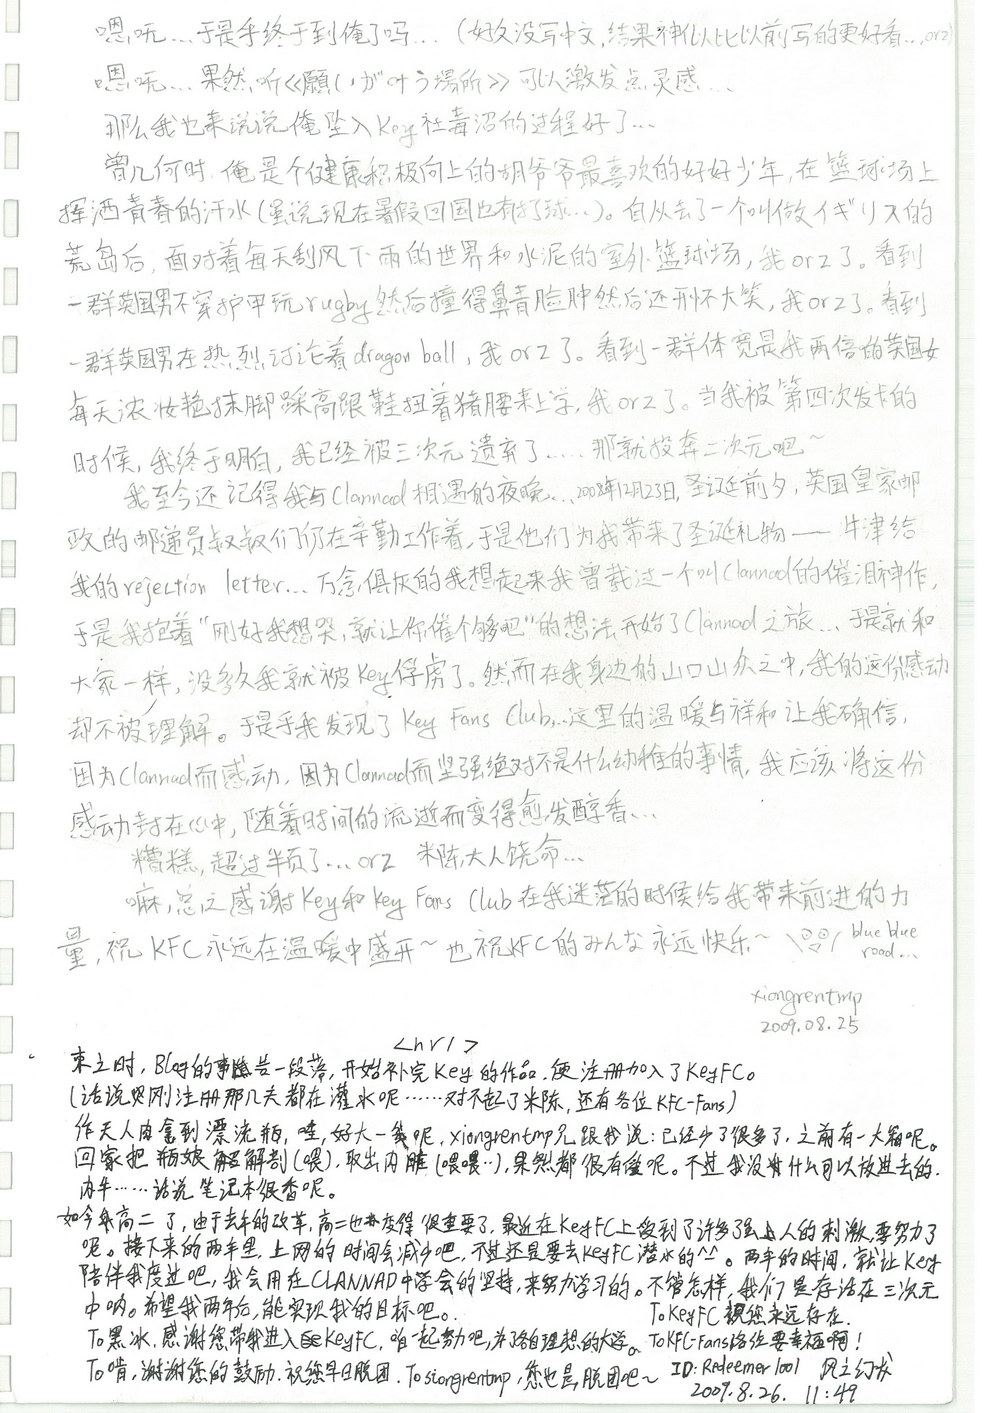 嗯呒...于是乎终于到俺了吗...（好久没写中文,结果神似比以前写的更好看...,orz）
嗯呒...果然,听《願いが叶う場所》可以激发点灵感...
那么我也来说说俺坠入Key社毒沼的过程好了...
曾几何时,俺是个健康积极向上的胡爷爷最喜欢的好好少年,在篮球场上
挥洒青春的汗水(虽说现在暑假回国也有打球...)。自从去了一个叫做イギリス的
荒岛后,面对着每天刮风下雨的世界和水泥的室外篮球场,我orz了。看到
一群英国男不穿护甲玩rugby然后撞得鼻青脸肿然后还开怀大笑,我orz了。看到
一群英国男在热烈讨论着dragon ball,我orz了。看到一群体宽是我两倍的英国女
每天浓妆艳抹脚踩高跟鞋扭着猪腰来上学,我orz了。当我被第四次发卡的
时候,我终于明白,我已经被三次元遗弃了.....那就投奔二次元吧~
我至今还记得我与Clannad相遇的夜晚...2008年12月23日,圣诞前夕,英国皇家邮
政的邮递员叔叔们仍在辛勤工作着,于是他们为我带来了圣诞礼物——牛津给
我的rejection letter...万念俱灰的我想起来我曾载过一个叫Clannad的催泪神作,
于是我抱着"刚好我想哭,就让你催个够吧"的想法开始了Clannad之旅...于是就和
大家一样,没多久我就被Key俘虏了。然而在我身边的山口山众之中,我的这份感动
却不被理解。于是乎我发现了Key Fans Club...这里的温暖与祥和让我确信,
因为Clannad而感动,因为Clannad而坚强绝对不是什么幼稚的事情,我应该将这份
感动封在心中,随着时间的流逝而变得愈发醇香...
糟糕,超过半页了...orz 米陈大人饶命...
嘛,总之感谢Key和Key Fans Club在我迷茫的时候给我带来前进的力
量,祝KFC永远在温暖中盛开~也祝KFC的みんな永远快乐~ blue blue
road...
xiongrentmp
2009.08.25
<hr/>
来之时,Blog的事情告一段落,开始补完Key的作品.便注册加入了KeyFC。
(话说刚刚注册那几天都在灌水呢……对不起了米陈,还有各位KFC-Fans)
昨天人肉拿到漂流瓶,哇,好大一箱呢,xiongrentmp兄跟我说:已经少了很多了,之前有一大箱呢。
回家把瓶娘解剖(喂),取出内脏(喂喂..),果然都很有爱呢。不过我没有什么可以放进去的.
内牛……话说笔记本很香呢。
如今高二了,由于去年的改革,高二也变得很重要了,最近在KeyFC上受到了许多强人的刺激,要努力了
呢。接下来的两年里,上网的时间会减少吧,不过还是要去KeyFC潜水的^^。两年的时间,就让Key
陪伴我度过吧,我会用在CLANNAD中学会的坚持,来努力学习的。不管怎样,我们是存活在三次元
中呐。希望我两年后,能实现我的目标吧。 To KeyFC 祝您永远存在.
To黑冰,感谢您带我进入KeyFC,咱一起努力吧,为了各自理想的大学。 To KFC-Fans 各位要幸福啊!
To 啃,谢谢您的鼓励.祝您早日脱团. To xiongrentmp,您也是,脱团吧~ ID: Redeemer1001 风之幻成
2009.8.26. 11:49